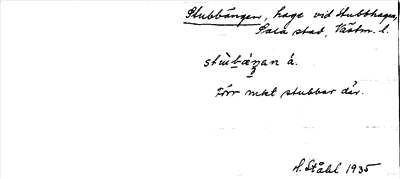 Stubbängen, hage vid Stubbhagen,
Sala stad, Västm. l.
stùbäŋan á.
förr mkt stubbar där.
H. Ståhl 1935